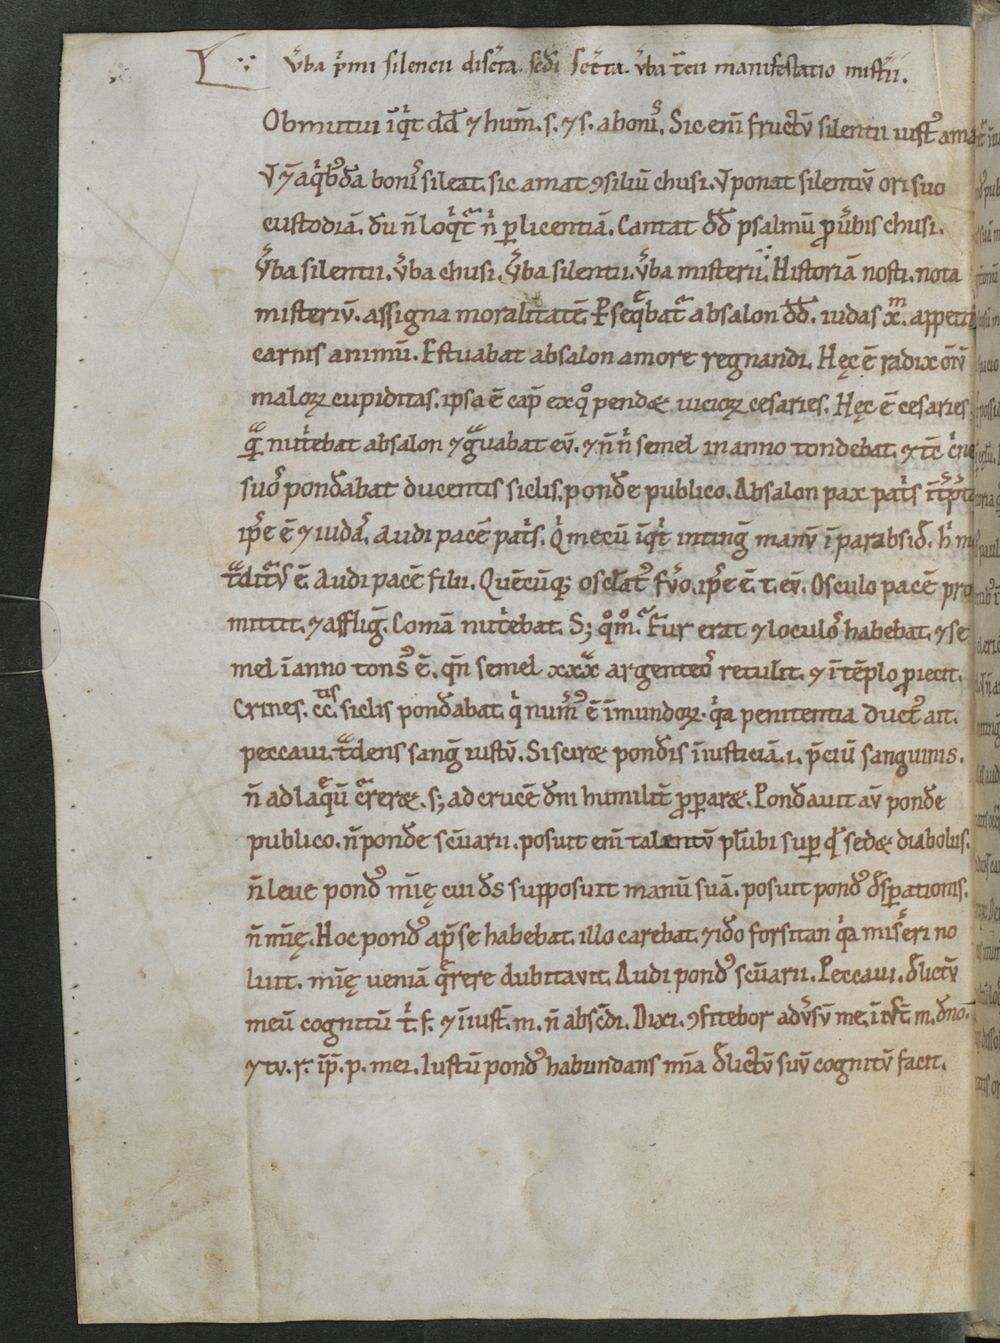 ∵ v̄ba p̄mi silencii disc̄ta. sc̄di sec̄ta. v̄ba t̄cii manifestatio mist̄ii.
Obmutui īq̇t dd̄ ⁊ hum̄. s. ⁊ s. abonis. Sic enī fructv̄ silentii iustꝰ ama
V ⁊ aq̇bꝰdā bonis sileat. sic amat ꝯsiliū chusi. Vponat silentiv̄ ori suo
custodiā. dū n̄ loq̇t n̄ ꝑ licentiā. Cantat dd̄ psalmū ꝓ v̄bis chusi.
V̄ba silentii. v̄ba chusi. V̄ba silentii. v̄ba misterii. Historiā nosti. nota
misteriv̄. assigna moralitatē. ꝑseq̄bat absalon dd̄. iudas xm̄. appetit
carnis animū. Estuabat absalon amore regnandi. Hęc ē radix om̄iv̄
maloꝝ cupiditas. ipsa ē cap̄ ex qͦ pendæ uicioꝝ cesaries. Hęc ē cesaries
q̄ nut̄ebat absalon ⁊ gͣuabat ev̄. ⁊ n̄ n̄ semel in anno tondebat. ⁊ tc̄ c̄ne
suos pond̄abat ducentis siclis. pond̄e publico. Absalon pax pat̄s
ip̄e ē ⁊ iudas. Audi pacē pat̄s. Q̇ mecū īq̇t intinḡ manv̄ ī parabsid̄. h̄ m
tͣditᵛͬ ē. Audi pacē filii. Quēcūq; osclatꝰ fv̄o. ip̄e ē. t. ev̄. Osculo pacē pro
mittit. ⁊ affliḡ. Comā nut̄ebat. S; qͦmͦ. Fur erat ⁊ loculos habebat. ⁊ se
mel ī anno tonsꝰ ē. qn̄ semel xxxͣ argenteos retulit. ⁊ ī tēplo ꝓiecit.
Crines. cc.ᵗⁱˢ siclis pond̄abat. q̇ num̄ꝰ ē īmundoꝝ. q̇a penitentia ductꝰ ait.
peccaui. tͣdens sanḡ iustv̄. Si scires pond̄is īiusticiā. i. p̄ciū sanguinis.
n̄ ad laq̄ū c̄reræ. s; ad crucē dn̄i humilit̄ ꝓparæ. Pond̄auit av̄ pond̄e
publico. n̄ pond̄e sc̄uarii. posuit enī talentv̄ plūbi suꝑ qd̄ sedæ diabolus.
n̄ leue pondꝰ mīę cui ds̄ supposuit manū suā. posuit pondꝰ desꝑationis.
n̄ mīę. Hoc pondꝰ ap̄ se habebat. illo carebat. ⁊ iđo forsitan q̇a mis̄eri no
luit. mīę ueniā q̄rere dubitavit. Audi pondꝰ sc̄uarii. Peccaui. d̄lictv̄
meū cognitū t̄. f. ⁊ īiust̄. m. n̄ absc̄di. Dixi. ꝯfitebor adv̄sv̄ me. īiust̄. m. dn̄o.
⁊ tv. r. īp̄. p. mei. Iustū pondꝰ habundans mīa d̄lictv̄ suv̄ cognitv̄ facit.